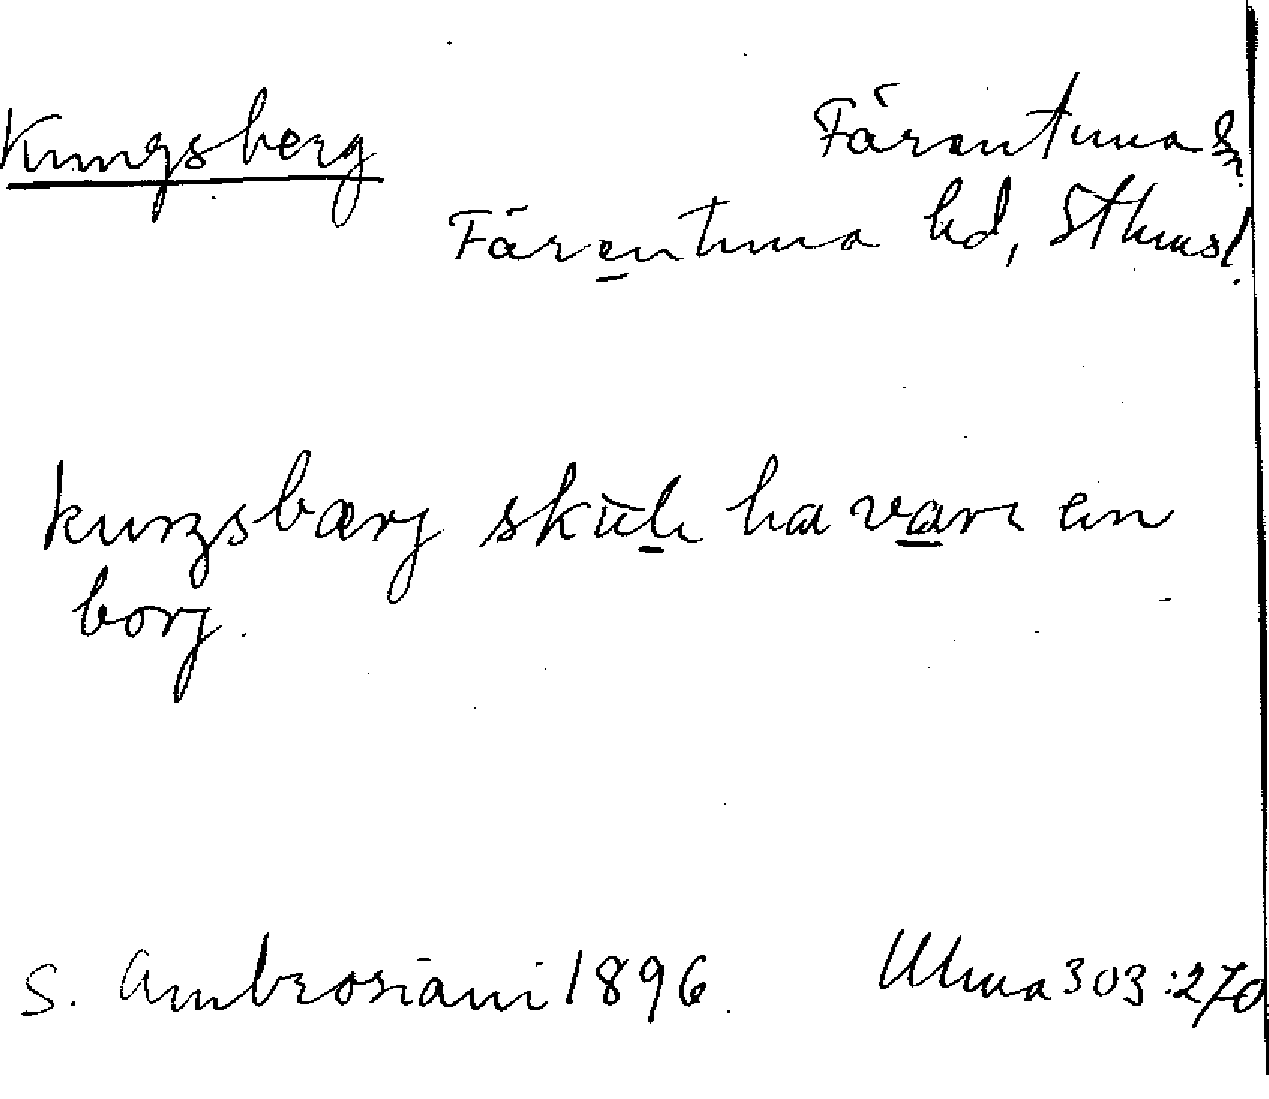 Kungsberg Färentuna sn
Färentuna hd, Sthmsl.
kuŋsbærj skule ha vari en
borj.
S. Ambrosiani 1896. Ulma 303:270